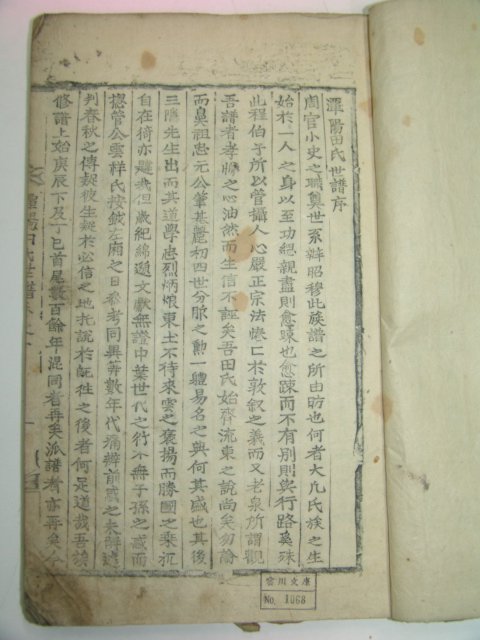 潭陽田氏世譜序
周官小史之職奠世系辨昭穆此族譜之所由昉也何者大凡氏族之生
始於一人之身以至功緦親盡則愈踈也愈踈而不有別則與行路奚殊
此程伯子所以管攝人心嚴正宗法惓〻於敦叙之義而又老泉所謂觀
吾譜者孝悌之心油然而生信不誣矣吾田氏始齊流東之說尚矣勿論
而鼻祖忠元公肇基麗初四世分脈之勳一軆易名之典何其盛也其後
三隱先生出而其道學忠烈炳烺東土不待來雲之褒揚而勝國之乘沉
自在猗亦韙哉但歲紀綿邈文獻無證中葉世代之行不無子孫之惑而
摠管公雲祥氏按歙左廟之日叅考同異筭數年代痛辨前歲之未詳
判春秋之傳契彼生疑於必信之地托說於旣徃之後者何足道哉吾
修譜上始庚辰下及丁巳首尾數百餘年混同者再矣派譜者亦再矣今
潭陽田氏世譜
雲川文庫
No. 1068